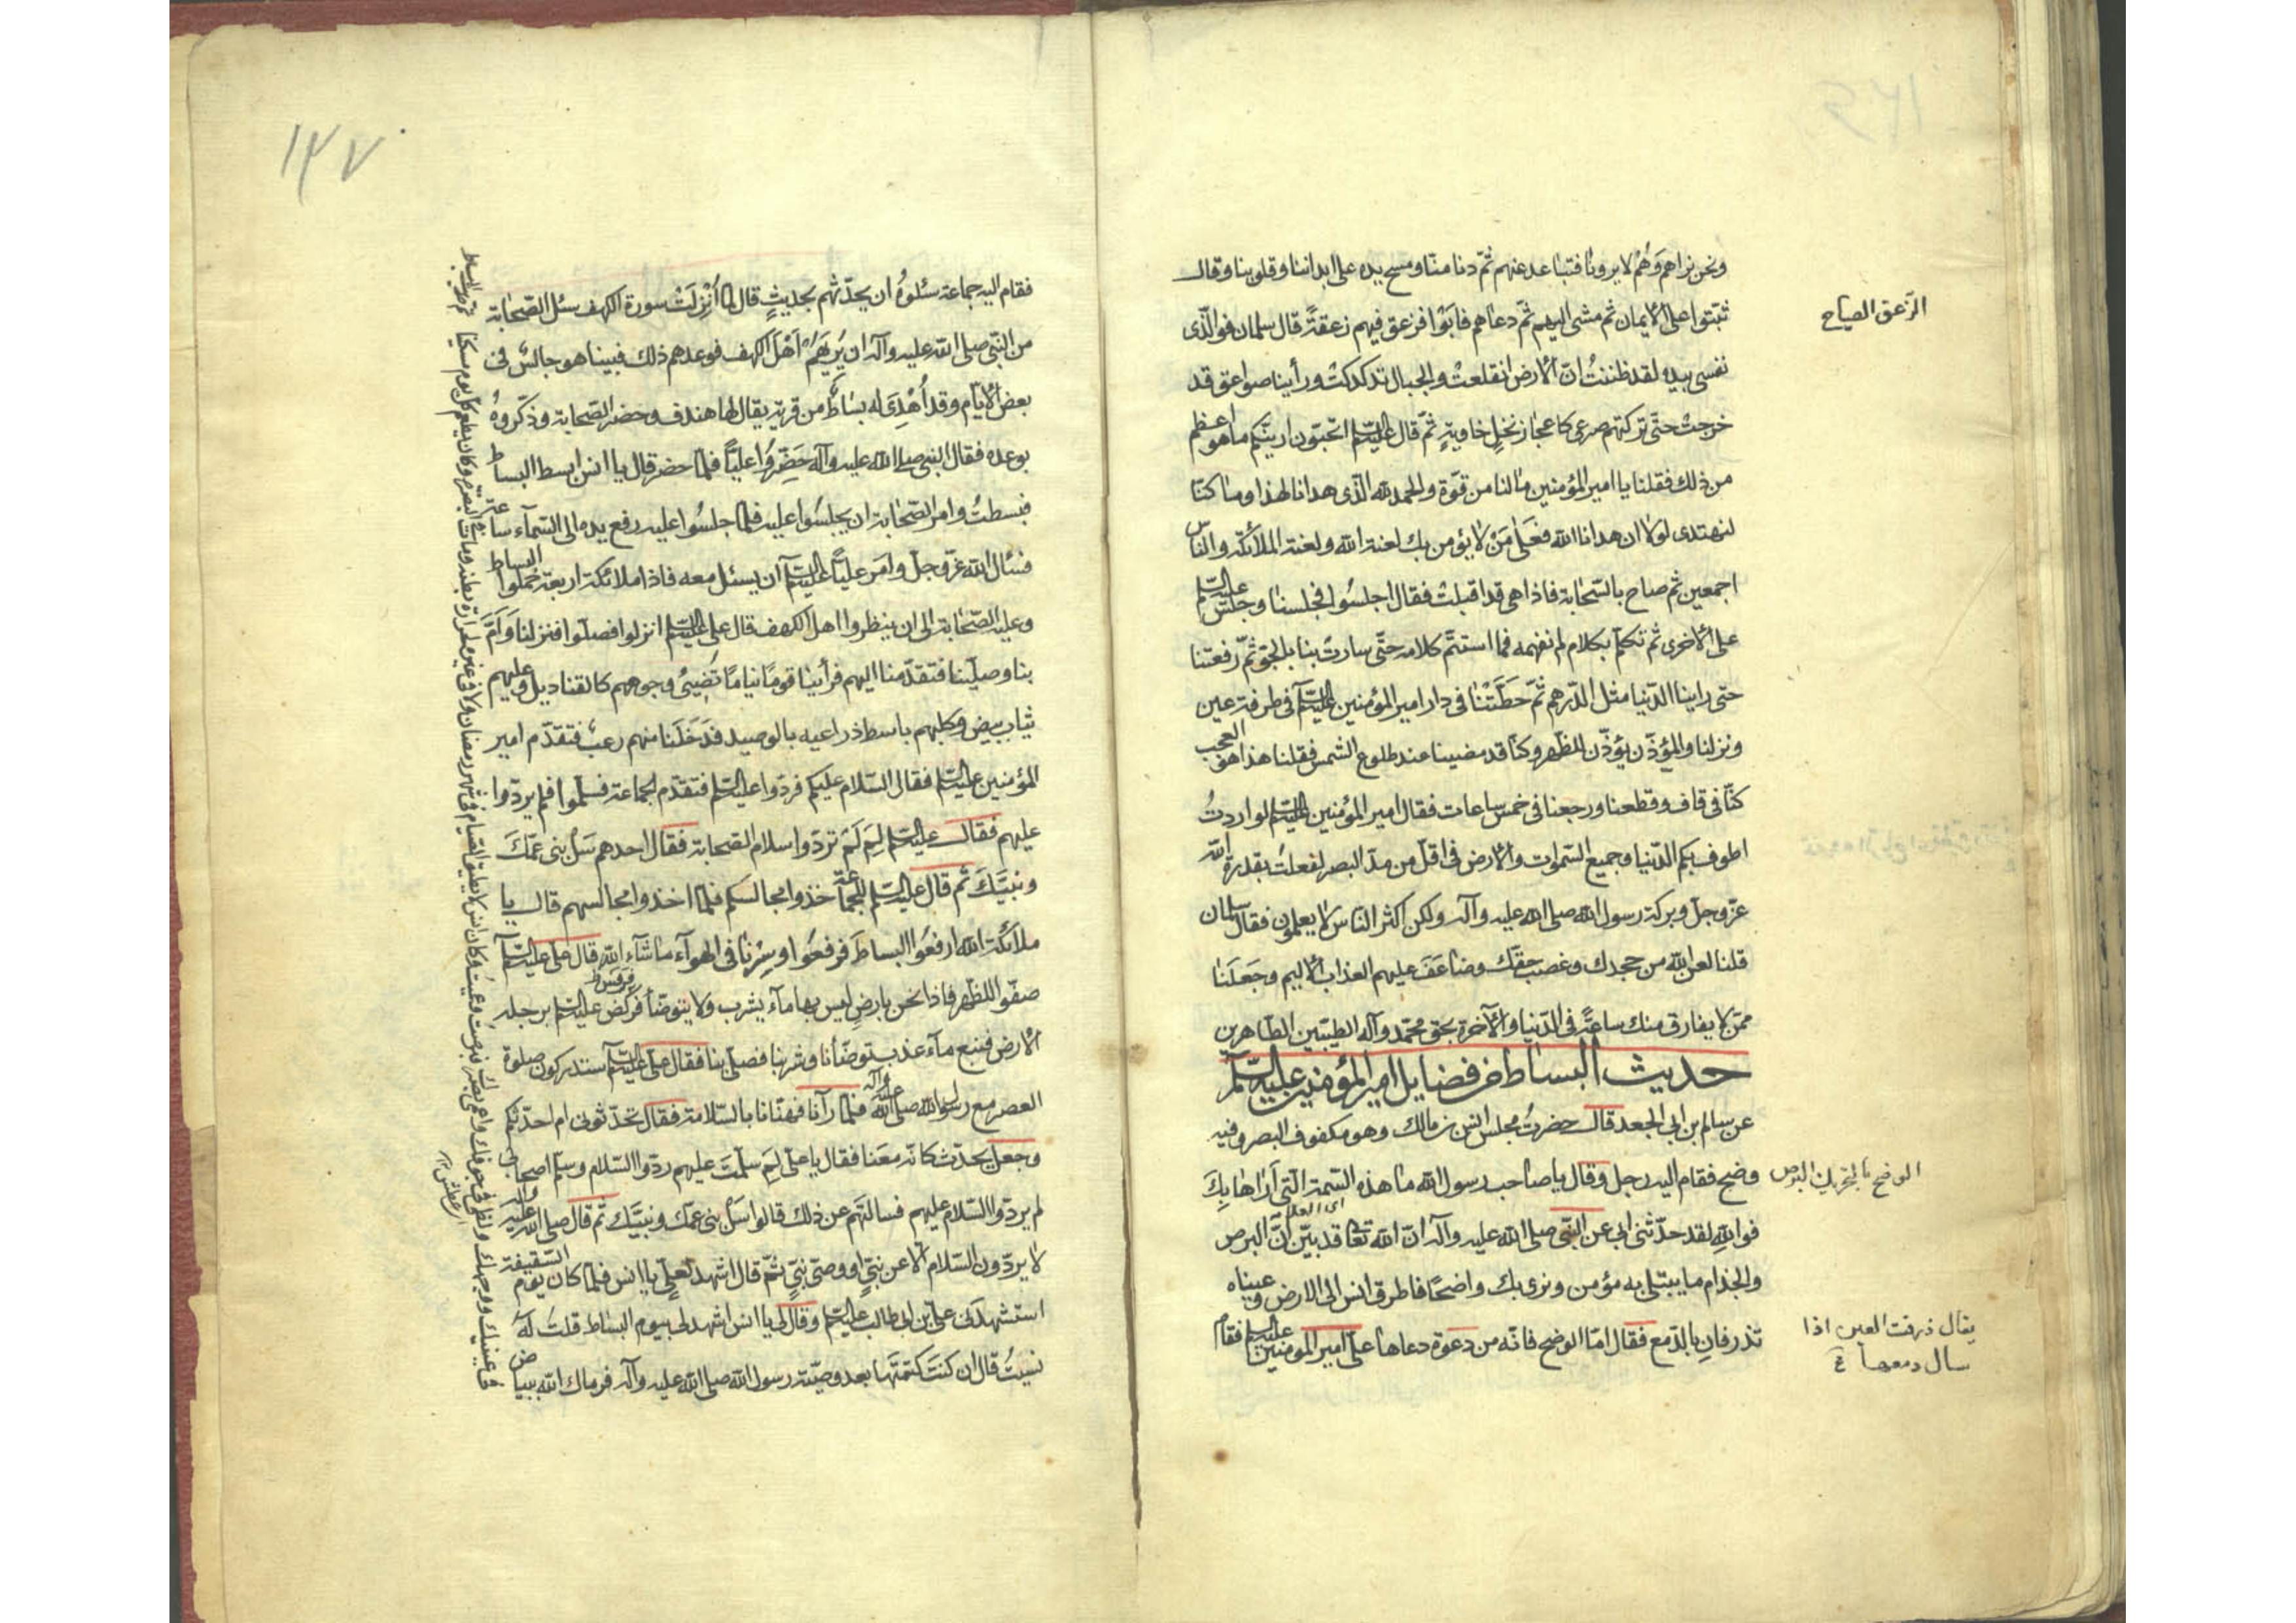 ونحن نراهم وهم لا يرونا فتباعد عنهم ثم دنا منا ومسح يده على ابداننا وقلوبنا وقال
ثبتوا على الايمان ثم مشى اليهم ثم دعاهم فابوا فزعق فيهم زعقةً قال سلمان فوالّذى
نفسى بيده لقد ظننتُ انّ الارض انقلعتْ والجبال تدكدكتْ ورأينا صواعق قد
خرجتْ حتّى تركتهم صرعى كاعجاز نخلٍ خاويةٍ ثمّ قال عليه السّلم اتحبّون اريتكم ما هو اعظم
من ذلك فقلنا يا امير المؤمنين ما لنا من قوّة والحمد لله الّذى هدانا لهذا وما كنّا
لنهتدى لولا ان هدانا الله فعلى مَنْ لا يؤمن بك لعنة الله ولعنة الملائكة والناس
اجمعين ثم صاح بالسّحابة فاذا هى قد اقبلتْ فقال اجلسُوا فجلسنا وجلس عليه السّلم
على الاخرى ثم تكلم بكلام لم نفهمه فما استتمّ كلامه حتّى سارتْ بنا بالجوّ ثمّ رفعتنا
حتى راينا الدّنيا مثل الدّرهم ثمّ حَطَّتْنا فى دار امير المؤمنين عليه السّلم فى طرفة عين
ونزلنا والمؤذّن يؤذّن للظّهر وكنّا قد مضينا عند طلوع الشمس فقلنا هذا هو العجب
كنّا فى قاف وقطعنا ورجعنا فى خمس ساعات فقال امير المؤمنين عليه السّلم لو اردتُ
اطوف بكم الدّنيا وجميع السّموات والارض فى اقلّ من مدّ البصر لفعلتُ بقدرة الله
عزّ وجلّ وبركة رسول الله صلى الله عليه وآله ولكن اكثر الناس لا يعلمون فقال سلمان
قلنا لعن الله من جحدك وغصب حقّك وضاعَفَ عليهم العذاب الاليم وجَعَلَنا
ممّن لا يفارق منك ساعةً فى الدّنيا والآخرة بحق محمّد وآله الطيّبين الطّاهرين
حديث البساط من فضايل امير المؤمنين عليه السّلم
عن سالم بن ابى الجعد قال حضرتُ مجلس انس بن مالك وهو مكفوف البصر وفيه
وضح فقام اليه رجل وقال يا صاحب رسول الله ما هذه السّمة الّتى اَراها بِكَ
فوالله لقد حدّثنى ابى عن النّبى صلى الله عليه وآله انّ الله تعالى قد بيّن انّ البرص
والجذام ما يبتلى به مؤمن ونرى بك واضحًا فاطرق انس الى الارض وعيناه
تذرفان بالدّمع فقال امّا الوضح فانّه من دعوة دعاها علىّ امير المؤمنين عليه السّلم فقام
الزعق الصياح
الوضح بالتحريك البرص
اى العلامة
يقال ذرفت العين اذا
سال دمعها
١٤٧
فقام اليه جماعة سئلوهُ ان يحدّثهم بحديثٍ قال لمّا اُنْزِلَتْ سورة الكهف سئل الصّحابة
من النّبىّ صلى الله عليه وآله ان يُريَهُمْ اَهْلَ الكهف فوعدهم ذلك فبينا هو جالسٌ فى
بعض الايّام وقد اُهْدِىَ له بساطٌ من قرية يقال لها هندف وحضر الصّحابة وذكّروهُ
بوعده فقال النبى صلى الله عليه وآله حَضِّرُوا عليّاً فلمّا حضر قال يا انس ابسط البساط
فبسطتُ وامر الصّحابة ان يجلسُوا عليه فلمّا جلسُوا عليه رفع يده الى السّمآء ساعة
فسئال الله عزّ وجلّ وامَر عليّاً عليه السّلم ان يسئل معه فاذا ملائكة اربعة حملوا البساط
وعليه الصّحابة الى ان ينظروا اهل الكهف قال على عليه السّلم انزلوا فصلّوا فنزلنا وَاَمَّ
بنا وصلّينا فتقدّمنا اليهم فرأينا قومًا نيامًا تُضِيئُ وجوههم كالقناديل وعليهم
ثياب بيض وكلبهم باسط ذراعيه بالوصيد فدَخَلَنا منهم رعبٌ فتقدّم امير
المؤمنين عليه السّلم فقال السّلام عليكم فردّوا عليه السّلم فتقدّم الجماعة فسلّموا فلم يردّوا
عليهم فقال عليه السّلم لِمَ لَمْ تردّوا سلام الصّحابة فقال احدهم سَلْ بنى عمّكَ
ونبيّكَ ثم قال عليه السّلم للجماعة خذوا مجالسكم فلمّا اخذوا مجالسهم قال يا
ملآئكة الله ارفعُوا البساطَ فرفعُوا وسِرْنا فى الهوآء ما شآء الله قال على عليه السّلم
صفّوا للظّهر فاذا نحن بارضٍ ليس بها مآء يشرب ولا يتوضّأ فركض عليه السّلم برجله
الارض فنبع مآء عذب توضّأنا وشربنا فصلّى بنا فقال على عليه السّلم ستدركون صلوة
العصر مع رسول الله صلى الله عليه وآله فلمّا رآنا فهنّانا بالسّلامة فقال تحدّثونى ام احدّثكم
وجعل يحدّث كانّه معَنا فقال يا على لِمَ سلّمتَ عليهم ردّوا السّلام وسلّم اصحابى
لم يردّوا السّلام عليهم فسالتهم عن ذلك قالوا سَلْ بنى عمّك ونبيّك ثمّ قال صلى الله عليه وآله
لا يردّون السّلام الا عن نبىّ او وصىّ نبىّ ثمّ قال اشهد لعلىّ يا انس فلمّا كان يوم السّقيفة
استشهدنى علىّ بن ابى طالب عليه السّلم وقال لى يا انس اشهد لى بيوم البساط قلت لهُ
نسيتُ قال ان كنتَ كتمتها بعد وصيّة رسول الله صلى الله عليه وآله فرماك الله ببياض
فى عينيك ووجهك ولظى فى جوفك واعمى بصرك فبرصت وعميت وكان انس لا يطيق الصّيام فى شهر رمضان ولا فى غيره لحرارة بطنه ومات بالبصرة وكان يطعم كلّ يوم مسكينا